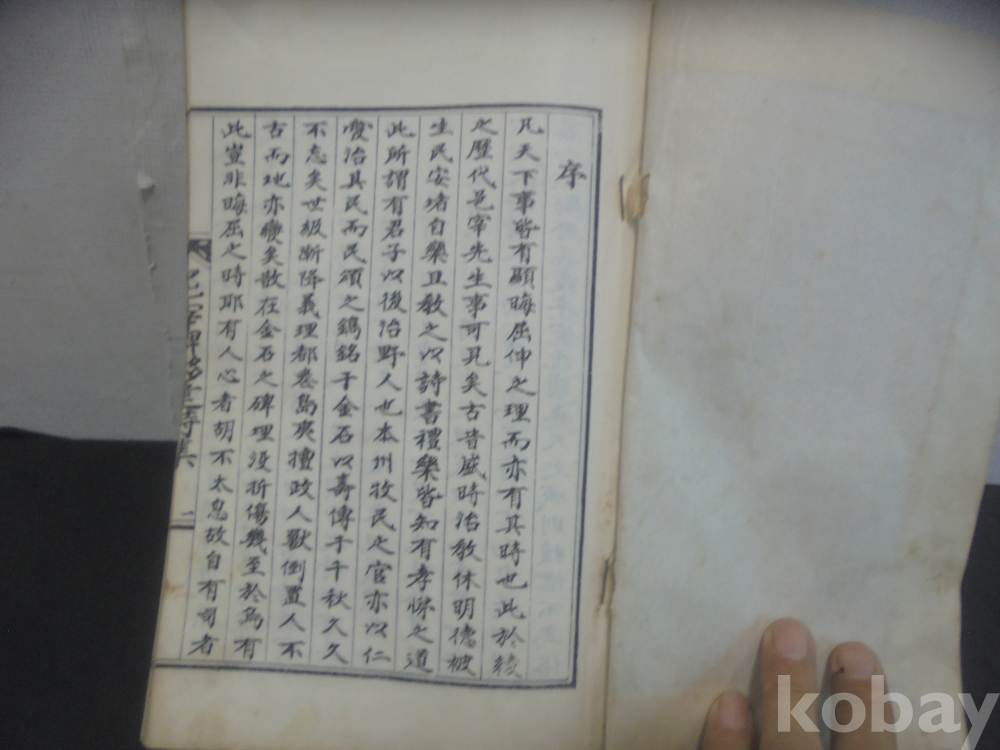 序
凡天下事皆有顯晦屈伸之理而亦有其時也此於綾
之歷代邑宰先生事可見矣古昔盛時治敎休明德被
生民安堵自樂且敎之以詩書禮樂皆知有孝悌之道
此所謂有君子以後治野人也本州牧民之官亦以仁
愛治其民而民頌之鐫銘于金石以壽傳于千秋久久
不忘矣世級漸降義理都喪島夷擅政人獸倒置人不
古而地亦變矣散在金石之碑埋沒折傷幾至於烏有
此豈非晦屈之時耶有人心者胡不太息故自有司者
一
kobay